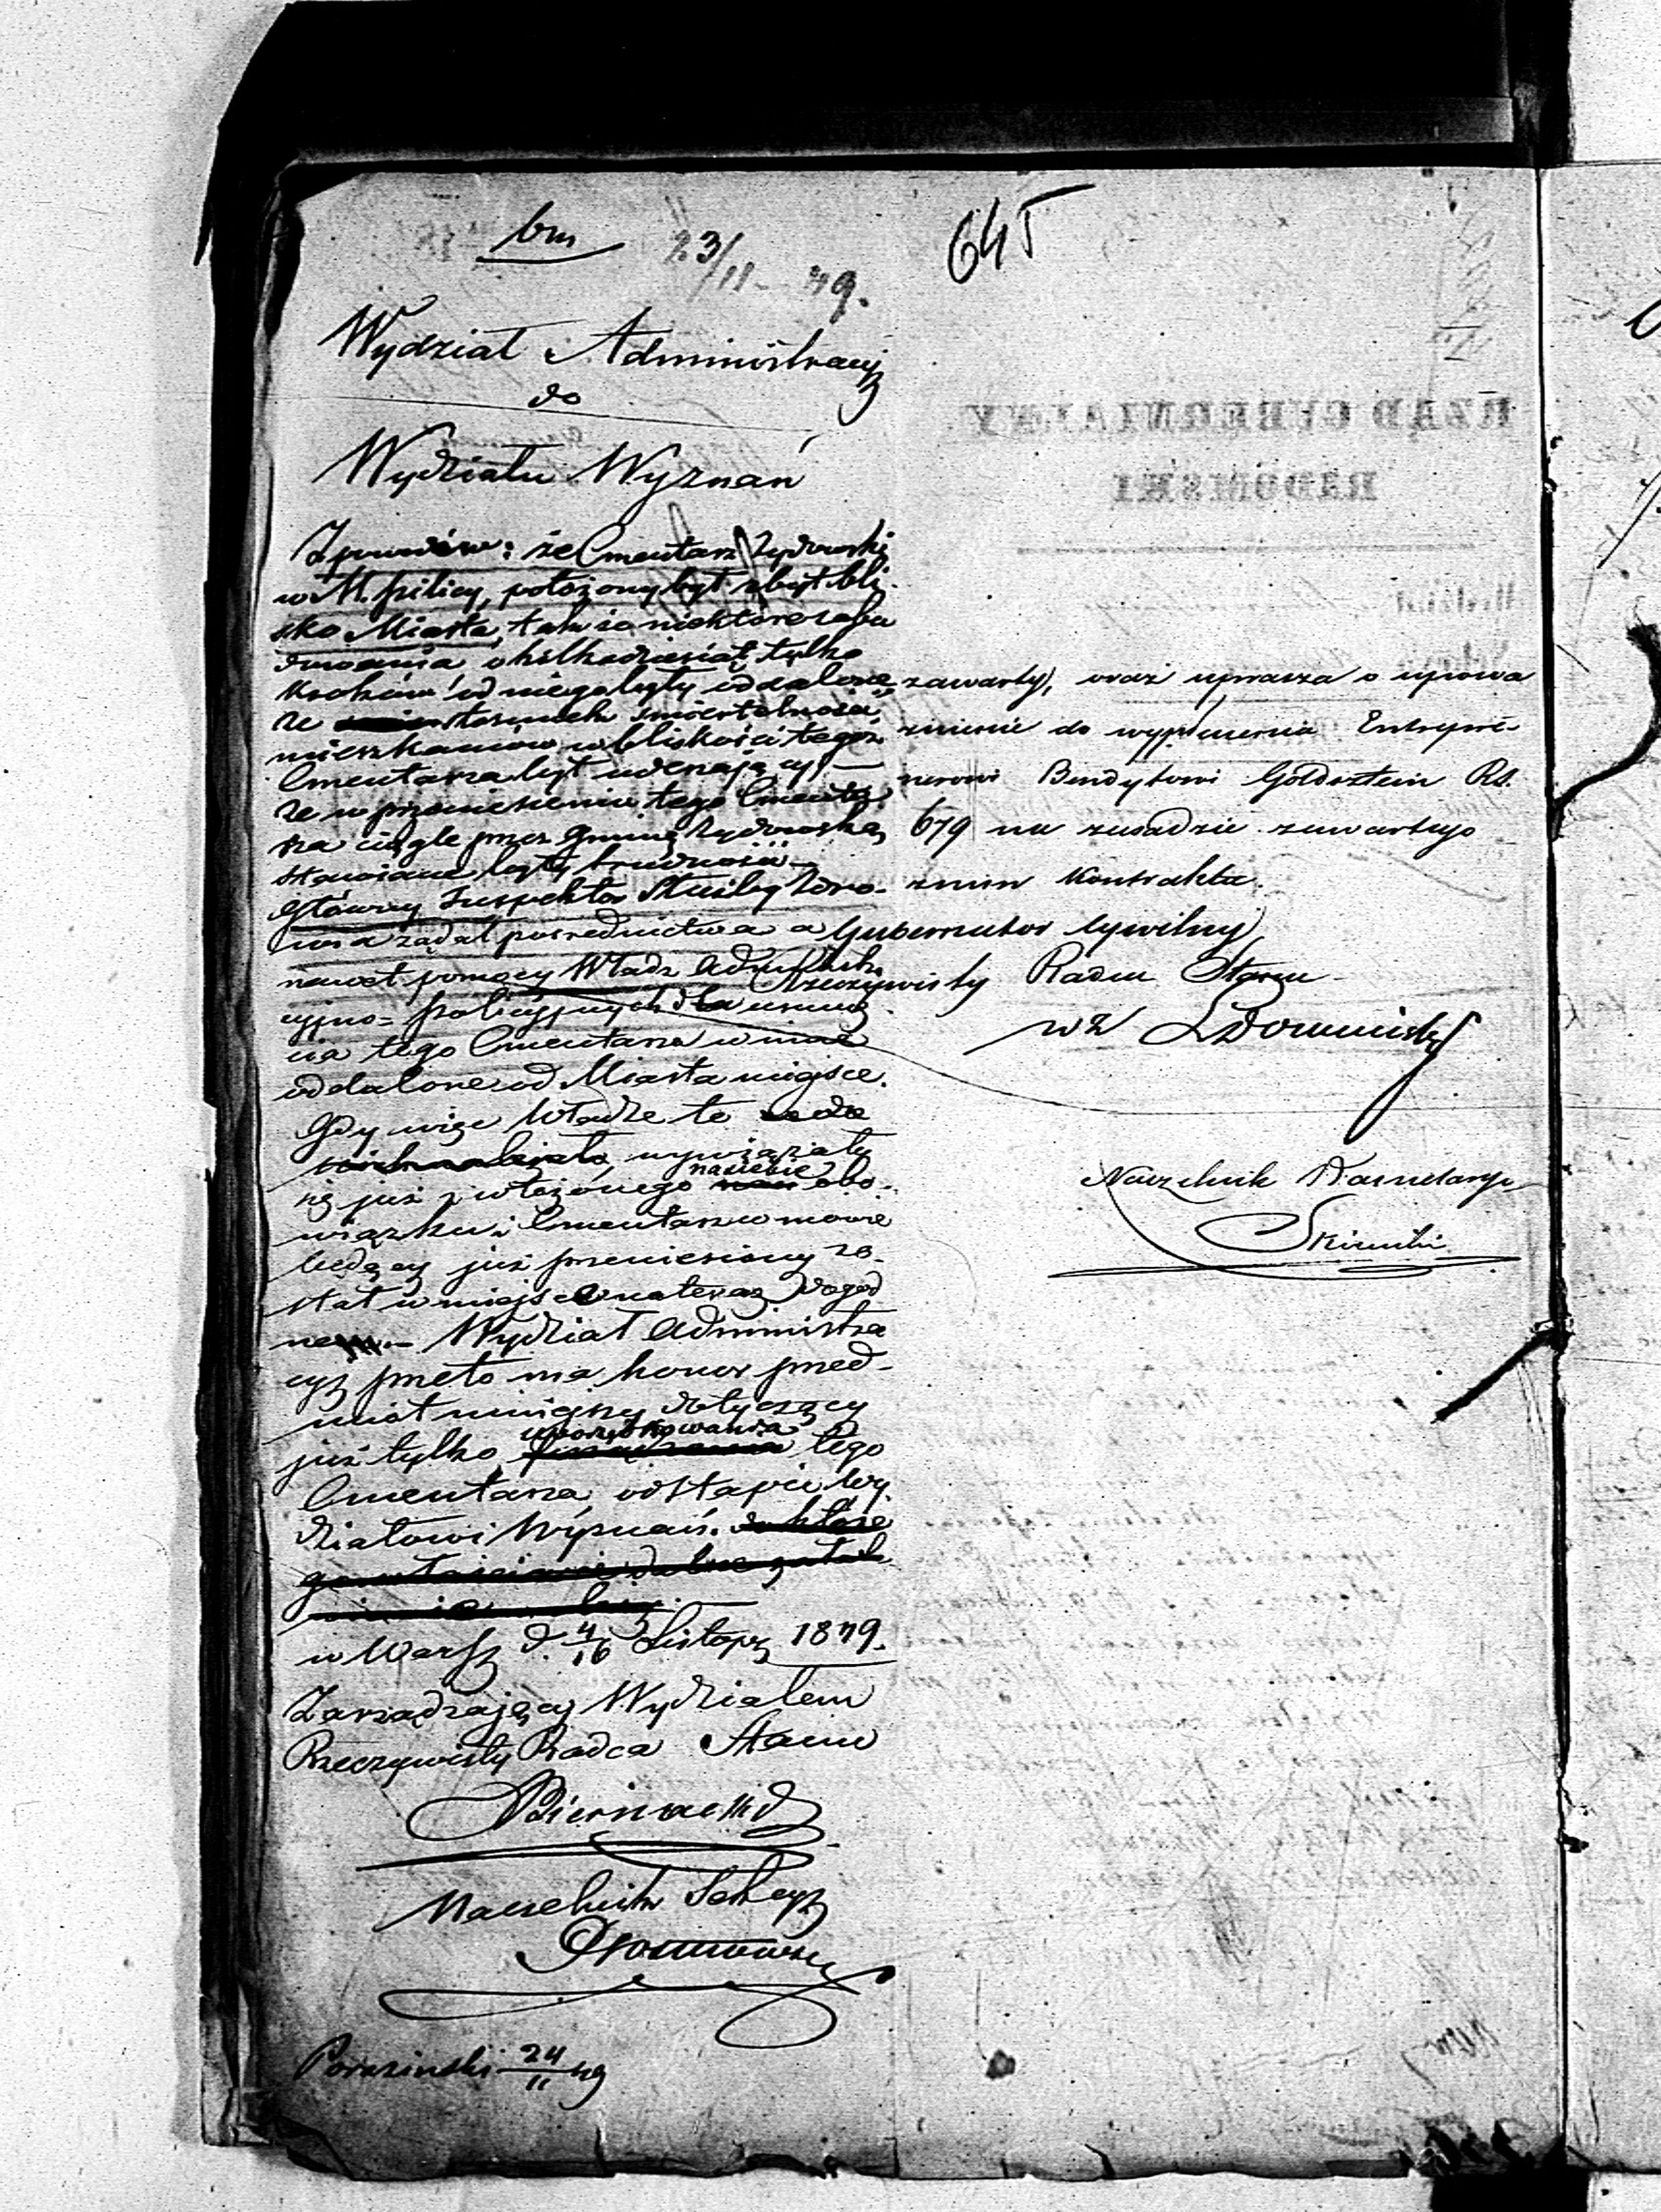 bm
23/11 49.
645
Wydział Administracyj
do
Wydziału Wyznań
Z powodów: że Cmentarz Żydowski
w M. Pilicy, położony był zbyt bli-
sko Miasta, tak że niektóre zabu
dowania o kilkadziesiąt tylko
kroków od niego były oddalone,
że stosunek śmiertelności
mieszkańców w bliskości tegoż
Cmentarza był uderzający —
że w przeniesieniu tego Cmenta
rza ciągle przez Gminę Żydowską
stawiane były trudności —
Główny Inspektor Służby Zdro-
wia żądał pośrednictwa a
nawet pomocy Władz Administra
cyjno-Policyjnych dla usunię
nia tego Cmentarza w inne
oddalone od Miasta miejsce.
Gdy więc Władze te
wywiązały
się już z włożonego na siebie obo-
wiązku i Cmentarz w mowie
będący już przeniesiony zo-
stał w miejsce na teraz dogod
ne — Wydział Administra
cyj przeto ma honor przed-
miot niniejszy dotyczący
już tylko uporządkowania tego
Cmentarza odstąpić Wy
działowi Wyznań.
w Warsz d. 4/16 Listop 1849.
Zarządzający Wydziałem
Rzeczywisty Radca Stanu
Biernacki
Naczelnik Sekcyi
Porazinski 24/11 49
RZĄD GUBERNIALNY
RADOMSKI
Wydział
Sekcja
zawarty, oraz uprasza o upowa
żnienie do wypłacenia Entrepre-
nerowi Bendytowi Goldsztein Rs.
679 na zasadzie zawartego
z nim Kontraktu.
Gubernator Cywilny
Rzeczywisty Radca Stanu
w z
Naczelnik Kancelaryi